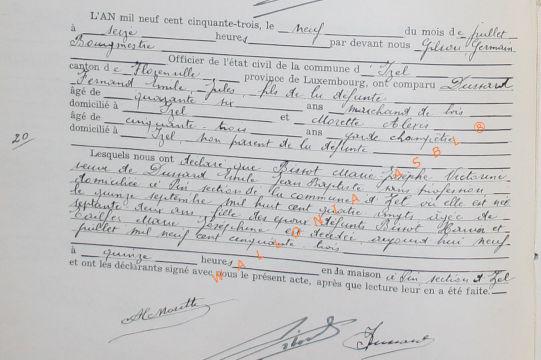 L'AN mil neuf cent cinquante-trois, le neuf du mois de juillet
à seize heures par devant nous Gilson Germain
Bourgmestre
Officier de l'état civil de la commune d'Izel
canton de Florenville, province de Luxembourg, ont comparu Dussard
Fernand Emile Jules, fils de la défunte
âgé de quarante six ans marchand de bois
domicilié à Izel et Morette Alexis
âgé de cinquante-trois ans garde champêtre
domicilié à Izel, non parent de la défunte
20
Lesquels nous ont déclaré que Bissot Marie Josèphe Victorine
veuve de Dussard Emile Jean Baptiste, sans profession
domiciliée à Pin section de la commune d'Izel où elle est née
le quinze septembre mil huit cent quatre vingts âgée de
septante deux ans, fille des époux défunts Bissot et
Marie Joséphine est décédée aujourd'hui neuf
juillet mil neuf cent cinquante trois
à quinze heures en da maison à Pin section d'Izel
et ont les déclarants signé avec nous le présent acte, après que lecture leur en a été faite.
AlMorette
Dussard
WALLONIA ASBL ®